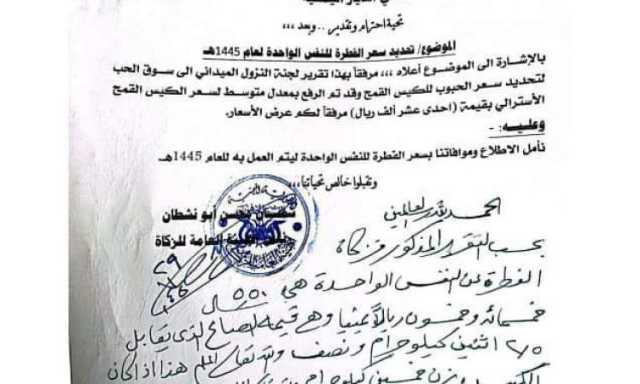 تحية احترام وتقدير .. وبعد ,,,
الموضوع/ تحديد سعر الفطرة للنفس الواحدة لعام 1445هـ
بالإشارة الى الموضوع أعلاه ,,, مرفقاً بهذا تقرير لجنة النزول الميداني الى سوق الحب
لتحديد سعر الحبوب للكيس القمح وقد تم الرفع بمعدل متوسط لسعر الكيس القمح
الأسترالي بقيمة (احدى عشر ألف ريال) مرفقاً لكم عرض الأسعار.
وعليه: -
نأمل الاطلاع وموافاتنا بسعر الفطرة للنفس الواحدة ليتم العمل به للعام 1445هـ
وتقبلوا خالص تحياتنا,,,
محسن أبو نشطان
الهيئة العامة للزكاة
الحمد لله رب العالمين
بحسب التقرير المذكور زكاة
الفطرة عن النفس الواحدة هي ٥٥٠ ريال
خمسمائة وخمسون ريالاً يمنياً وهي قيمة الصاع الذي يقابل
٢٫٥ اثنين كيلو جرام ونصف والله تعالى أعلم هذا اذا كان
الكيس وزن خمسين كيلو جرام